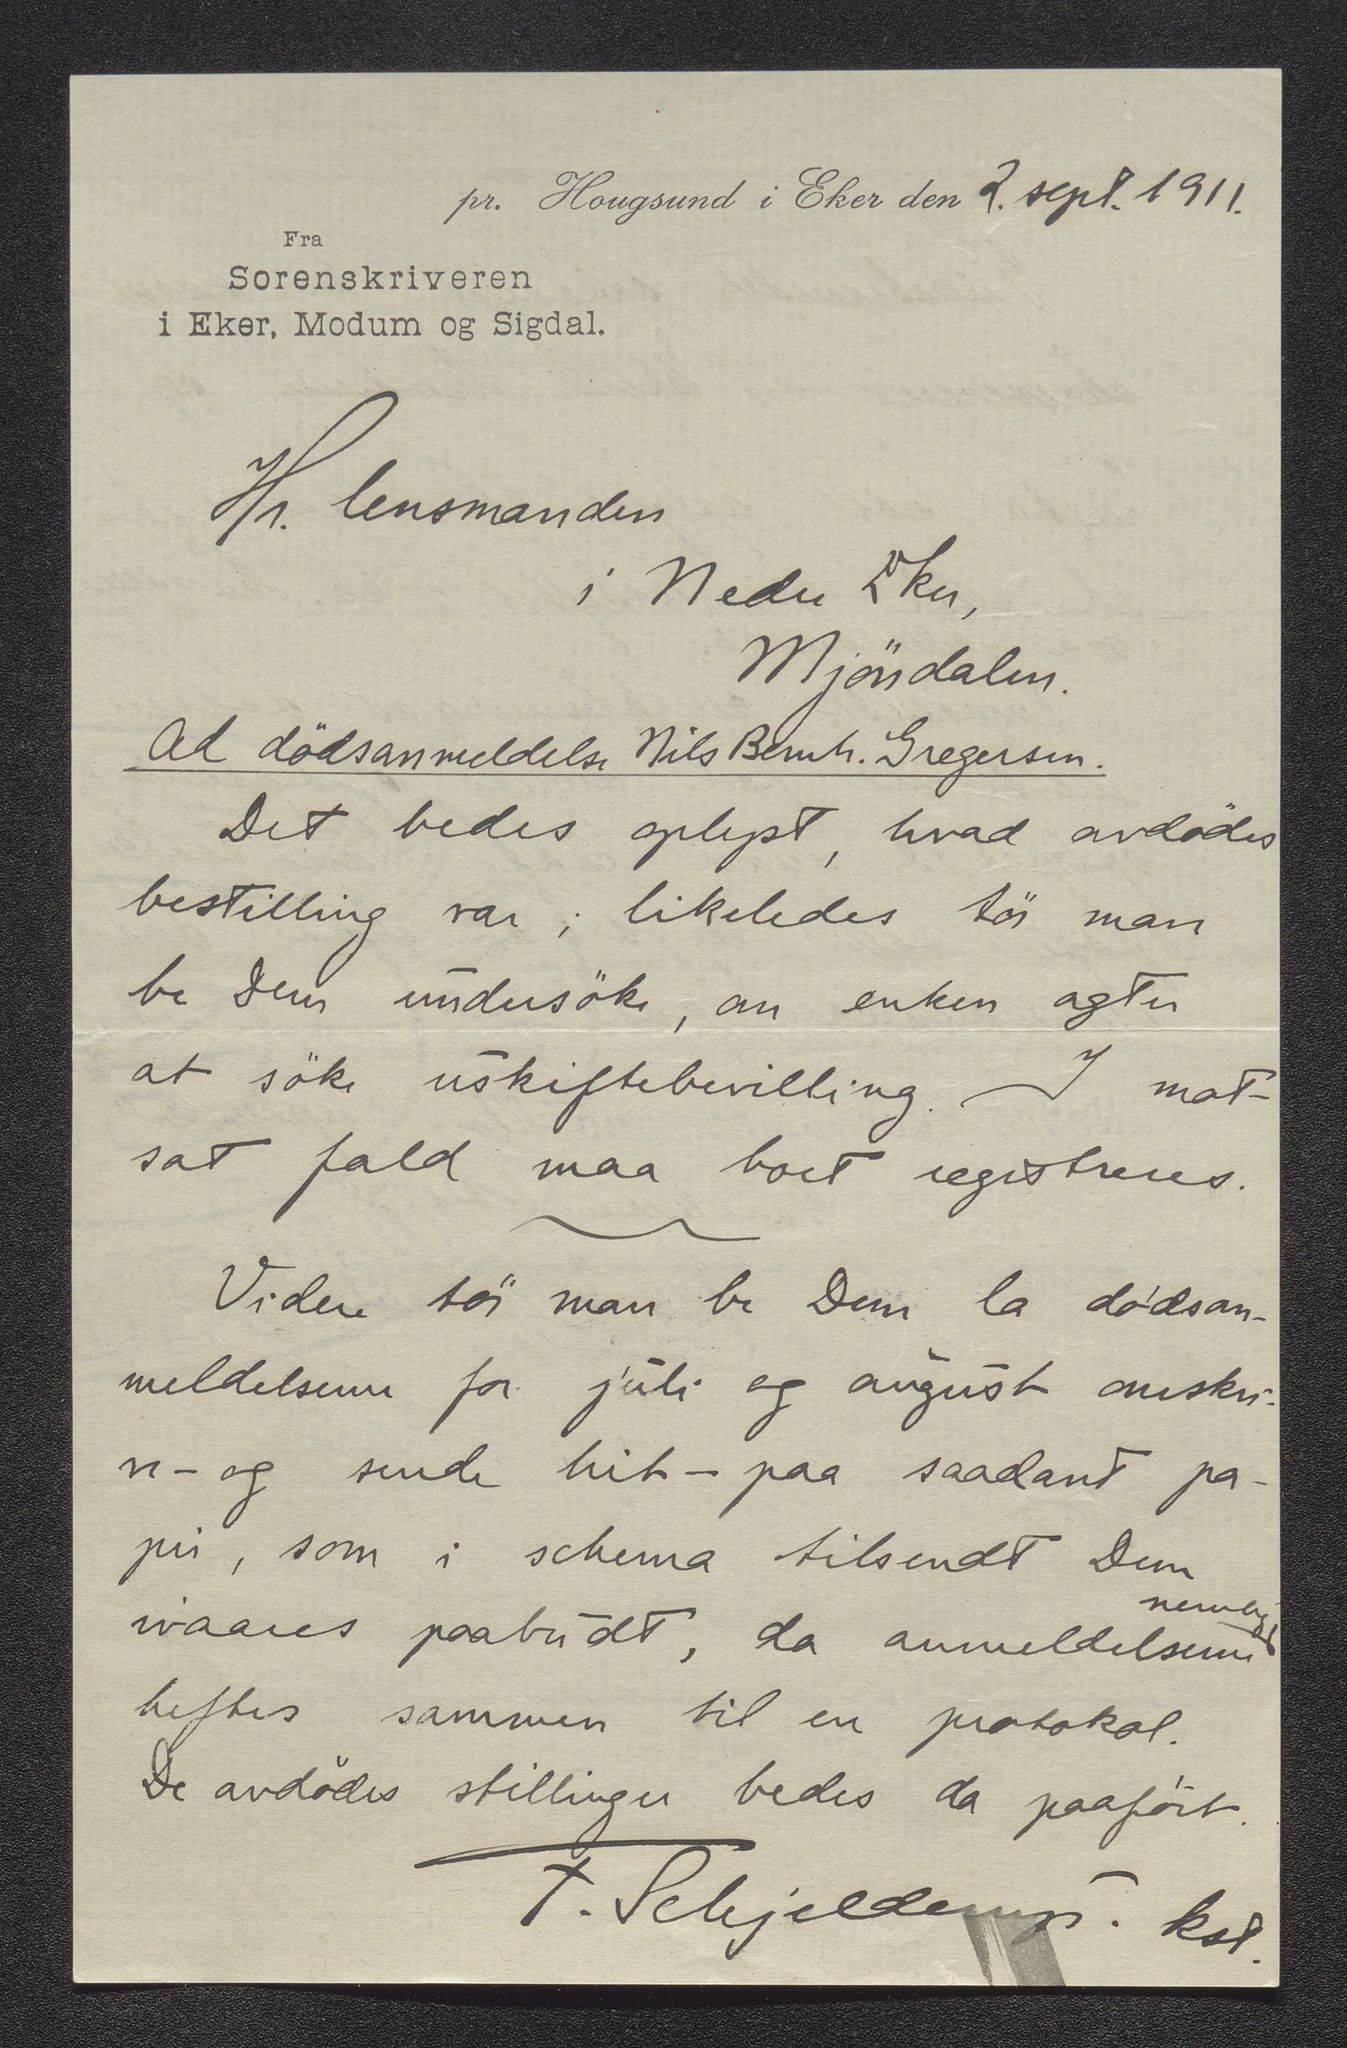 pr. Hougsund i Eker den 2. sept. 1911.
Fra
Sorenskriveren
i Eker, Modum og Sigdal.
Hr. lensmanden
i Nedre Eker,
Mjöndalen.
Ad dödsanmeldelse Nils Bernh. Gregersen.
Det bedes oplyst, hvad avdödes
bestilling var; likeledes tör man
be Dem undersöke, om enken agter
at söke uskiftebevilling. I mot-
sat fald maa boet registreres.
Videre tör man be Dem la dödsan-
meldelserne for juli og august omskri-
ve - og sende hit - paa saadant pa-
pir, som i schema tilsendt Dem
ivaares paabudt, da anmeldelserne nemlig
heftes sammen til en protokol.
De avdödes stillinger bedes da paaført.
T. Schjelderup. kst.